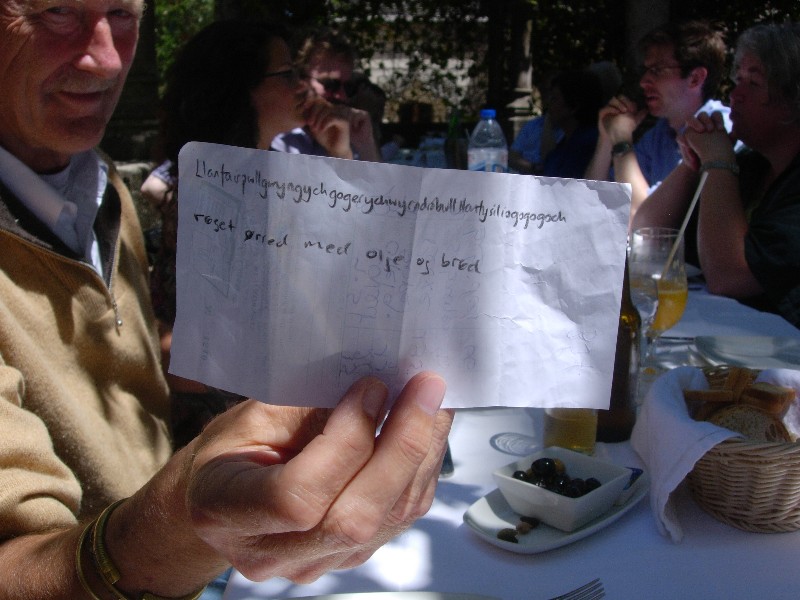 Llanfairpwllgwyngychgogerychwyrndrobwllllantysiliogogogoch
røget ørred med olje og brød